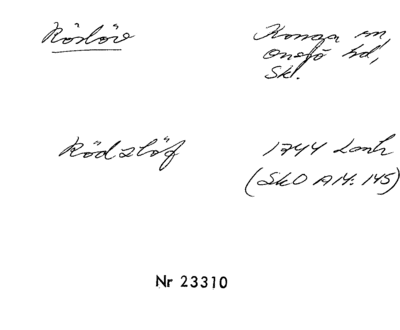 Röslöv
Konga sn,
Onsjö hd,
Skl.
Rödzlöf
1744 Lantk
(SkO A14: 145)
Nr 23310